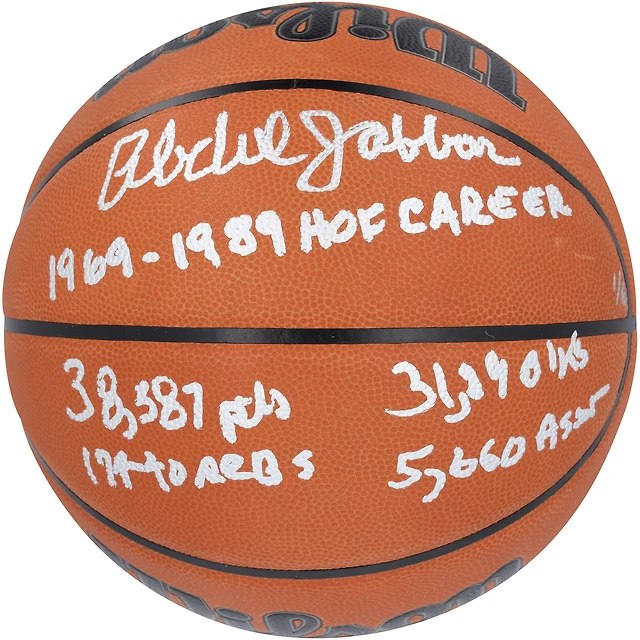 Wilson
Abdul Jabbar
1969-1989 HOF CAREER
38,387 pts
17440 REBS
5,660 Asst
Wilson